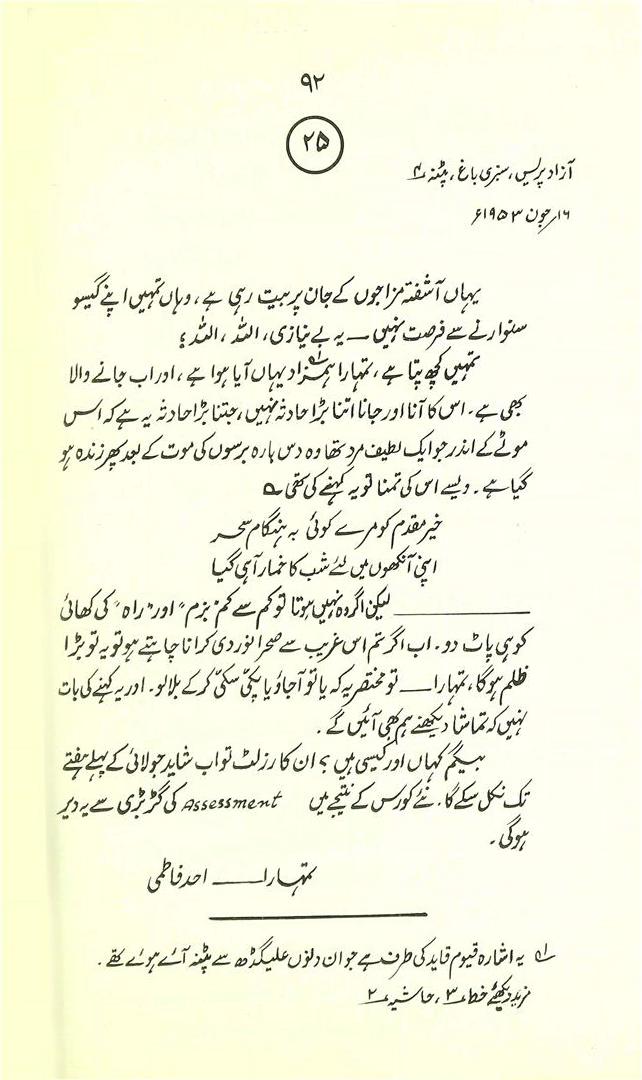 ۹۲
۲۵
آزاد پریس، سبزی باغ، پٹنہ ۴
۱۶؍جون ۱۹۵۳ء
یہاں آشفتہ مزاجوں کے جان پر بیت رہی ہے، وہاں تمہیں اپنے گیسو
سنوارنے سے فرصت نہیں — یہ بے نیازی، اللہ، اللہ؛
تمہیں کچھ پتا ہے، تمہارا ہمزاد۱ یہاں آیا ہوا ہے، اور اب جانے والا
بھی ہے۔ اس کا آنا اور جانا اتنا بڑا حادثہ نہیں، جتنا بڑا حادثہ یہ ہے کہ اس
موٹے کے اندر جو ایک لطیف مرد تھا وہ دس بارہ برسوں کی موت کے بعد پھر زندہ ہو
گیا ہے۔ ویسے اس کی تمنا تو یہ کہنے کی تھی ؎
خیر مقدم کو مرے کوئی بہ ہنگام سحر
اپنی آنکھوں میں لئے شب کا خمار آہی گیا
ـــــــــــ لیکن اگر وہ نہیں ہوتا تو کم سے کم "بزم" اور "راہ" کی کھائی
کو ہی پاٹ دو۔ اب اگر تم اس غریب سے صحرا نوردی کرانا چاہتے ہو تو یہ تو بڑا
ظلم ہوگا، تمہارا ــــ تو مختصر یہ کہ یا تو آجاؤ یا پکّی سکّی کر کے بلا لو۔ اور یہ کہنے کی بات
نہیں کہ تماشا دیکھنے ہم بھی آئیں گے۔
بیگم کہاں اور کیسی ہیں؟ ان کا رزلٹ تو اب شاید جولائی کے پہلے ہفتے
تک نکل سکے گا۔ نئے کورس کے نتیجے میں Assessment کی گڑبڑی سے یہ دیر
ہوگی۔
تمہارا ــــ احد فاطمی
۱ یہ اشارہ قیوم قاید کی طرف ہے جو ان دنوں علیگڈھ سے پٹنہ آئے ہوئے تھے۔
مزید دیکھئے خط ۳، حاشیہ ۲